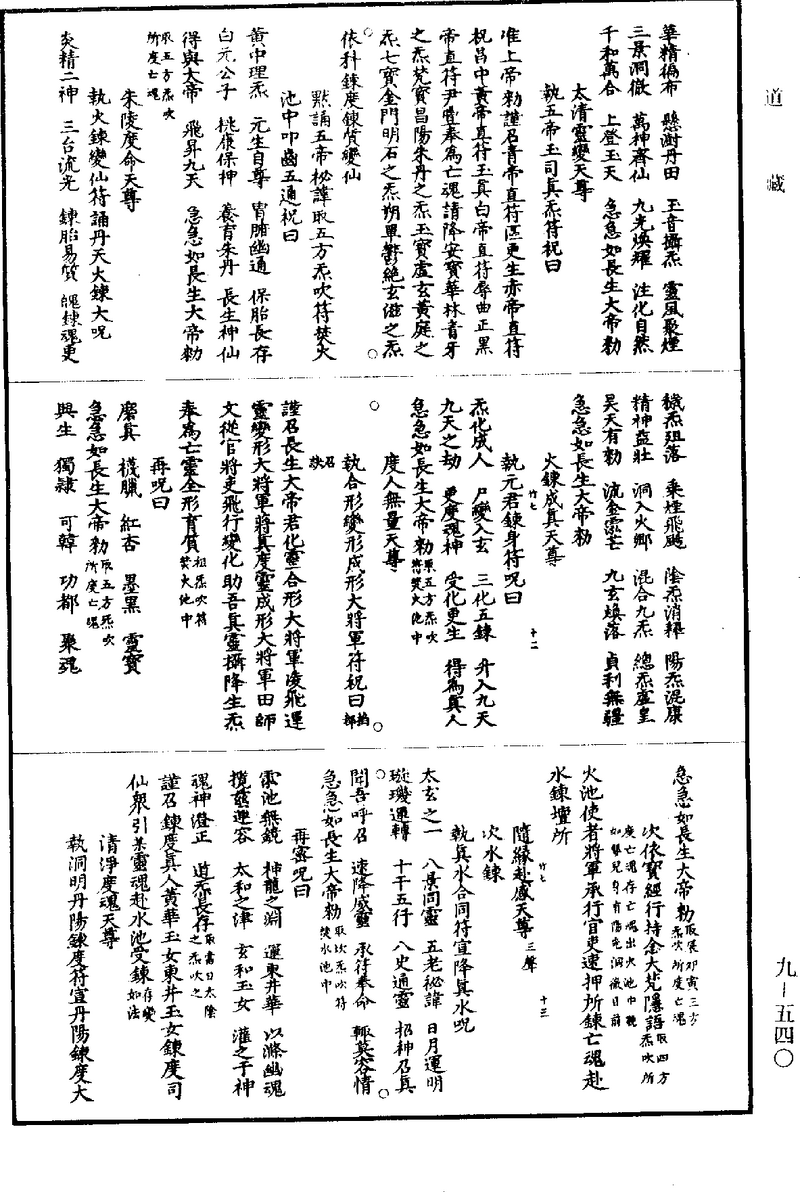 道藏
華精徧布　懸澍丹田　玉音攝炁　靈風聚煙
三景洞徹　萬神齊仙　九光煥耀　注化自然
千和萬合　上登玉天　急急如長生大帝勑
太清靈變天尊
執五帝玉司眞炁符祝曰
唯上帝勑謹召青帝直符區更生赤帝直符
祝昌中黃帝直符玉眞白帝直符辱曲正黑
帝直符尹豊奉為亡魂請降安寶華林青牙
之炁梵寶昌陽朱丹之炁玉寶虛玄黃庭之
炁七寶金門明石之炁朔單鬱絕玄滋之炁
依科鍊度鍊質變仙
默誦五帝秘諱取五方炁吹符焚火
池中叩齒五通祝曰
黃中理炁　元生自尊　胃腑幽通　保胎長存
白元公子　桃康保神　養育朱丹　長生神仙
得與太帝　飛昇九天　急急如長生大帝勑
取五方炁吹
所度亡魂
朱陵度命天尊
執火鍊變仙符誦丹天火鍊大呪
炎精二神　三台流光　鍊胎易質　魄鍊魂更
穢炁殂落　乘煙飛颷　陰炁消糶　陽炁混康
精神益壯　洞入火鄉　混合九炁　總炁虛皇
昊天有勑　流金霐芒　九玄煥落　貞利無疆
急急如長生大帝勑
火鍊成眞天尊
執元君鍊身符呪曰
竹七　十二
炁化成人　尸變入玄　三化五鍊　升入九天
九天之劫　更度魂神　受化更生　得為眞人
急急如長生大帝勑 取五方炁吹符焚火池中
度人無量天尊
執合形變形成形大將軍符祝曰
謹召長生大帝君化靈合形大將軍凌飛運
靈變形大將軍將眞度靈成形大將軍田師
文從官將吏飛行變化助吾眞靈攝降生炁
奉為亡靈全形育質 祖炁吹符焚火池中
再呪曰
麼眞　襪臘　紅杏　墨黑　靈寶
急急如長生大帝勑 取五方炁吹所度亡魂
興生　獨隷　可韓　功都　聚魂
急急如長生大帝勑 取辰卯寅三方炁吹所度亡魂
次依寶經行持念大梵隱語 取四方炁吹所
度亡魂存亡魂出火池中
水鍊壇所
火池使者將軍承行官吏速押所鍊亡魂赴
隨縁赴感天尊 三聲
竹七　十三
次水鍊
執眞水合同符宣降眞水呪
太玄之一　八景同靈　五老秘諱　日月運明
璇璣運轉　十干五行　八史通靈　招神召眞
聞吾呼召　速降威靈　承符奉命　輒莫容情
急急如長生大帝勑 取坎炁吹符焚水池中
再密呪曰
霐池無鏡　神龍之淵　運東井華　以滌幽魂
攬慈運容　太和之津　玄和玉女　灌之于神
魂神澄正　道炁長存 取當日太陰之炁吹之
謹召鍊度眞人黃華玉女東井玉女鍊度司
仙衆引某靈魂赴水池受鍊 存變如法
清淨度魂天尊
執洞明丹陽鍊度符宣丹陽鍊度大
九－五四〇